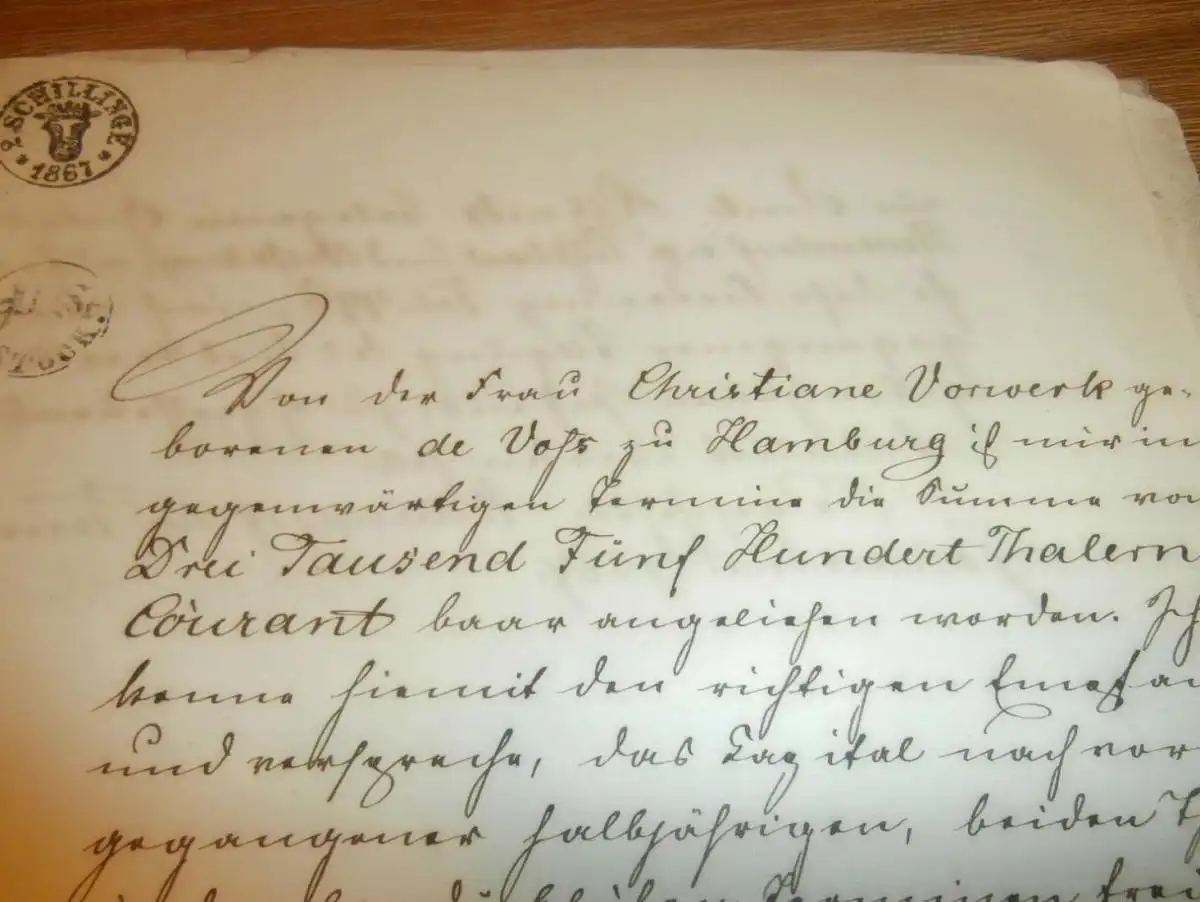 2 SCHILLINGE
1867
STOCK.
Von der Frau Christiane Vorwerk ge-
borenen de Voß zu Hamburg ist mir in
gegenwärtigen Termine die Summe vo
Drei Tausend Fünf Hundert Thalern
Courant baar angeliehen worden. Ich
kenne hiemit den richtigen Empfan
und verspreche, das Capital nach vor
gegangener halbjährigen, beiden Th
Terminen frei